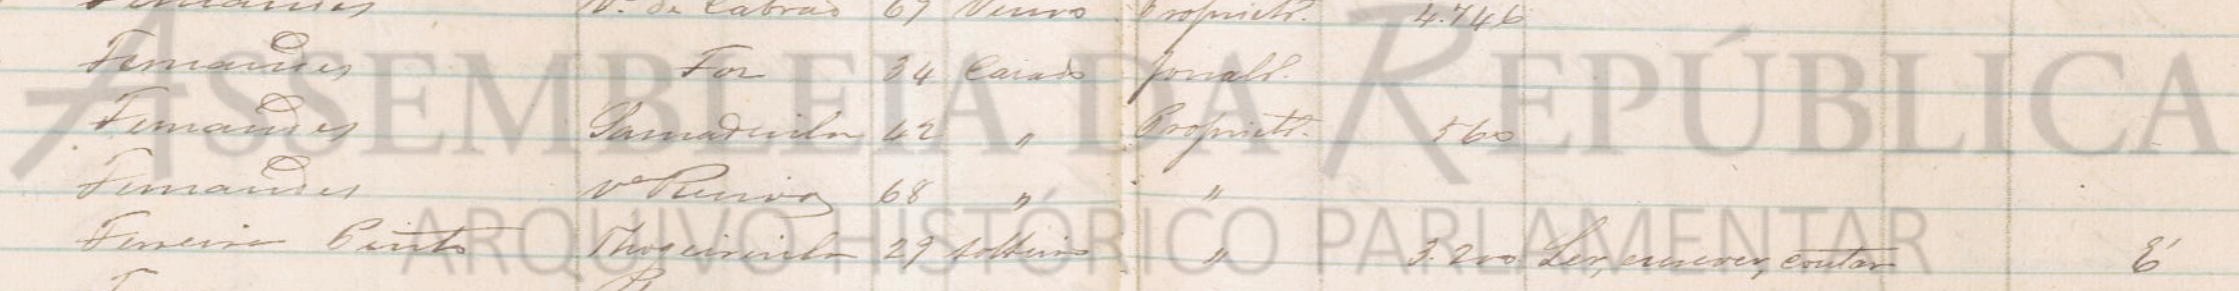 Fernandes V.ª de Cabras 67 Viuvo Propriet.º 4.746
Fernandes Foz 34 Casado Jornalº.
Fernandes 42 " Propriet.º 560
Fernandes 68 " "
Ferreira Pinto 29 solteiro " 3.200 Ler, escrever, contar É
ASSEMBLEIA DA REPÚBLICA
ARQUIVO HISTÓRICO PARLAMENTAR